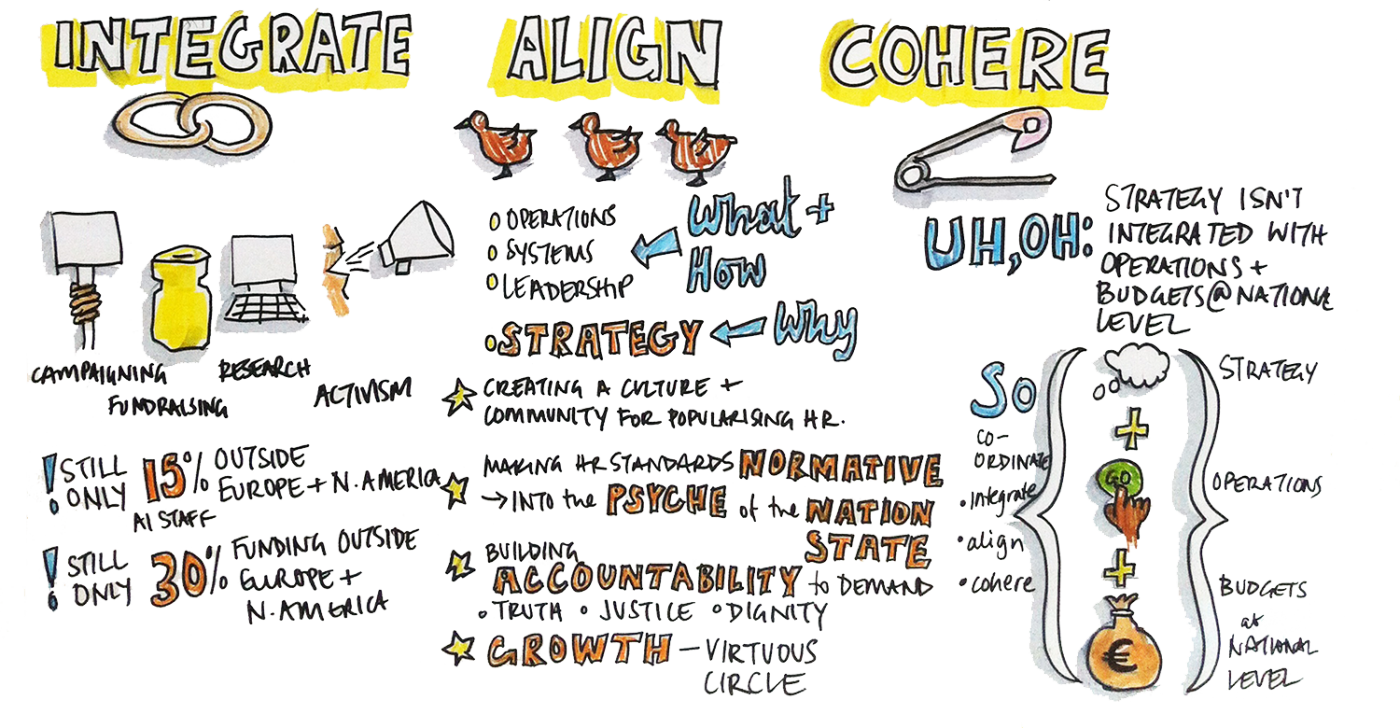 INTEGRATE
CAMPAIGNING
FUNDRAISING
RESEARCH
ACTIVISM
! STILL ONLY 15% OUTSIDE
EUROPE + N. AMERICA
AI STAFF
! STILL ONLY 30% FUNDING OUTSIDE
EUROPE +
N. AMERICA
ALIGN
OPERATIONS
SYSTEMS
LEADERSHIP
What +
How
STRATEGY
Why
CREATING A CULTURE +
COMMUNITY FOR POPULARISING HR.
MAKING HR STANDARDS NORMATIVE
→ INTO the PSYCHE of the NATION
STATE
BUILDING
ACCOUNTABILITY to DEMAND
• TRUTH • JUSTICE • DIGNITY
GROWTH – VIRTUOUS
CIRCLE
COHERE
UH, OH:
STRATEGY ISN'T
INTEGRATED WITH
OPERATIONS +
BUDGETS @ NATIONAL
LEVEL
SO
CO-
ORDINATE
• integrate
• align
• cohere
+
GO
+
€
STRATEGY
OPERATIONS
BUDGETS
at
NATIONAL
LEVEL